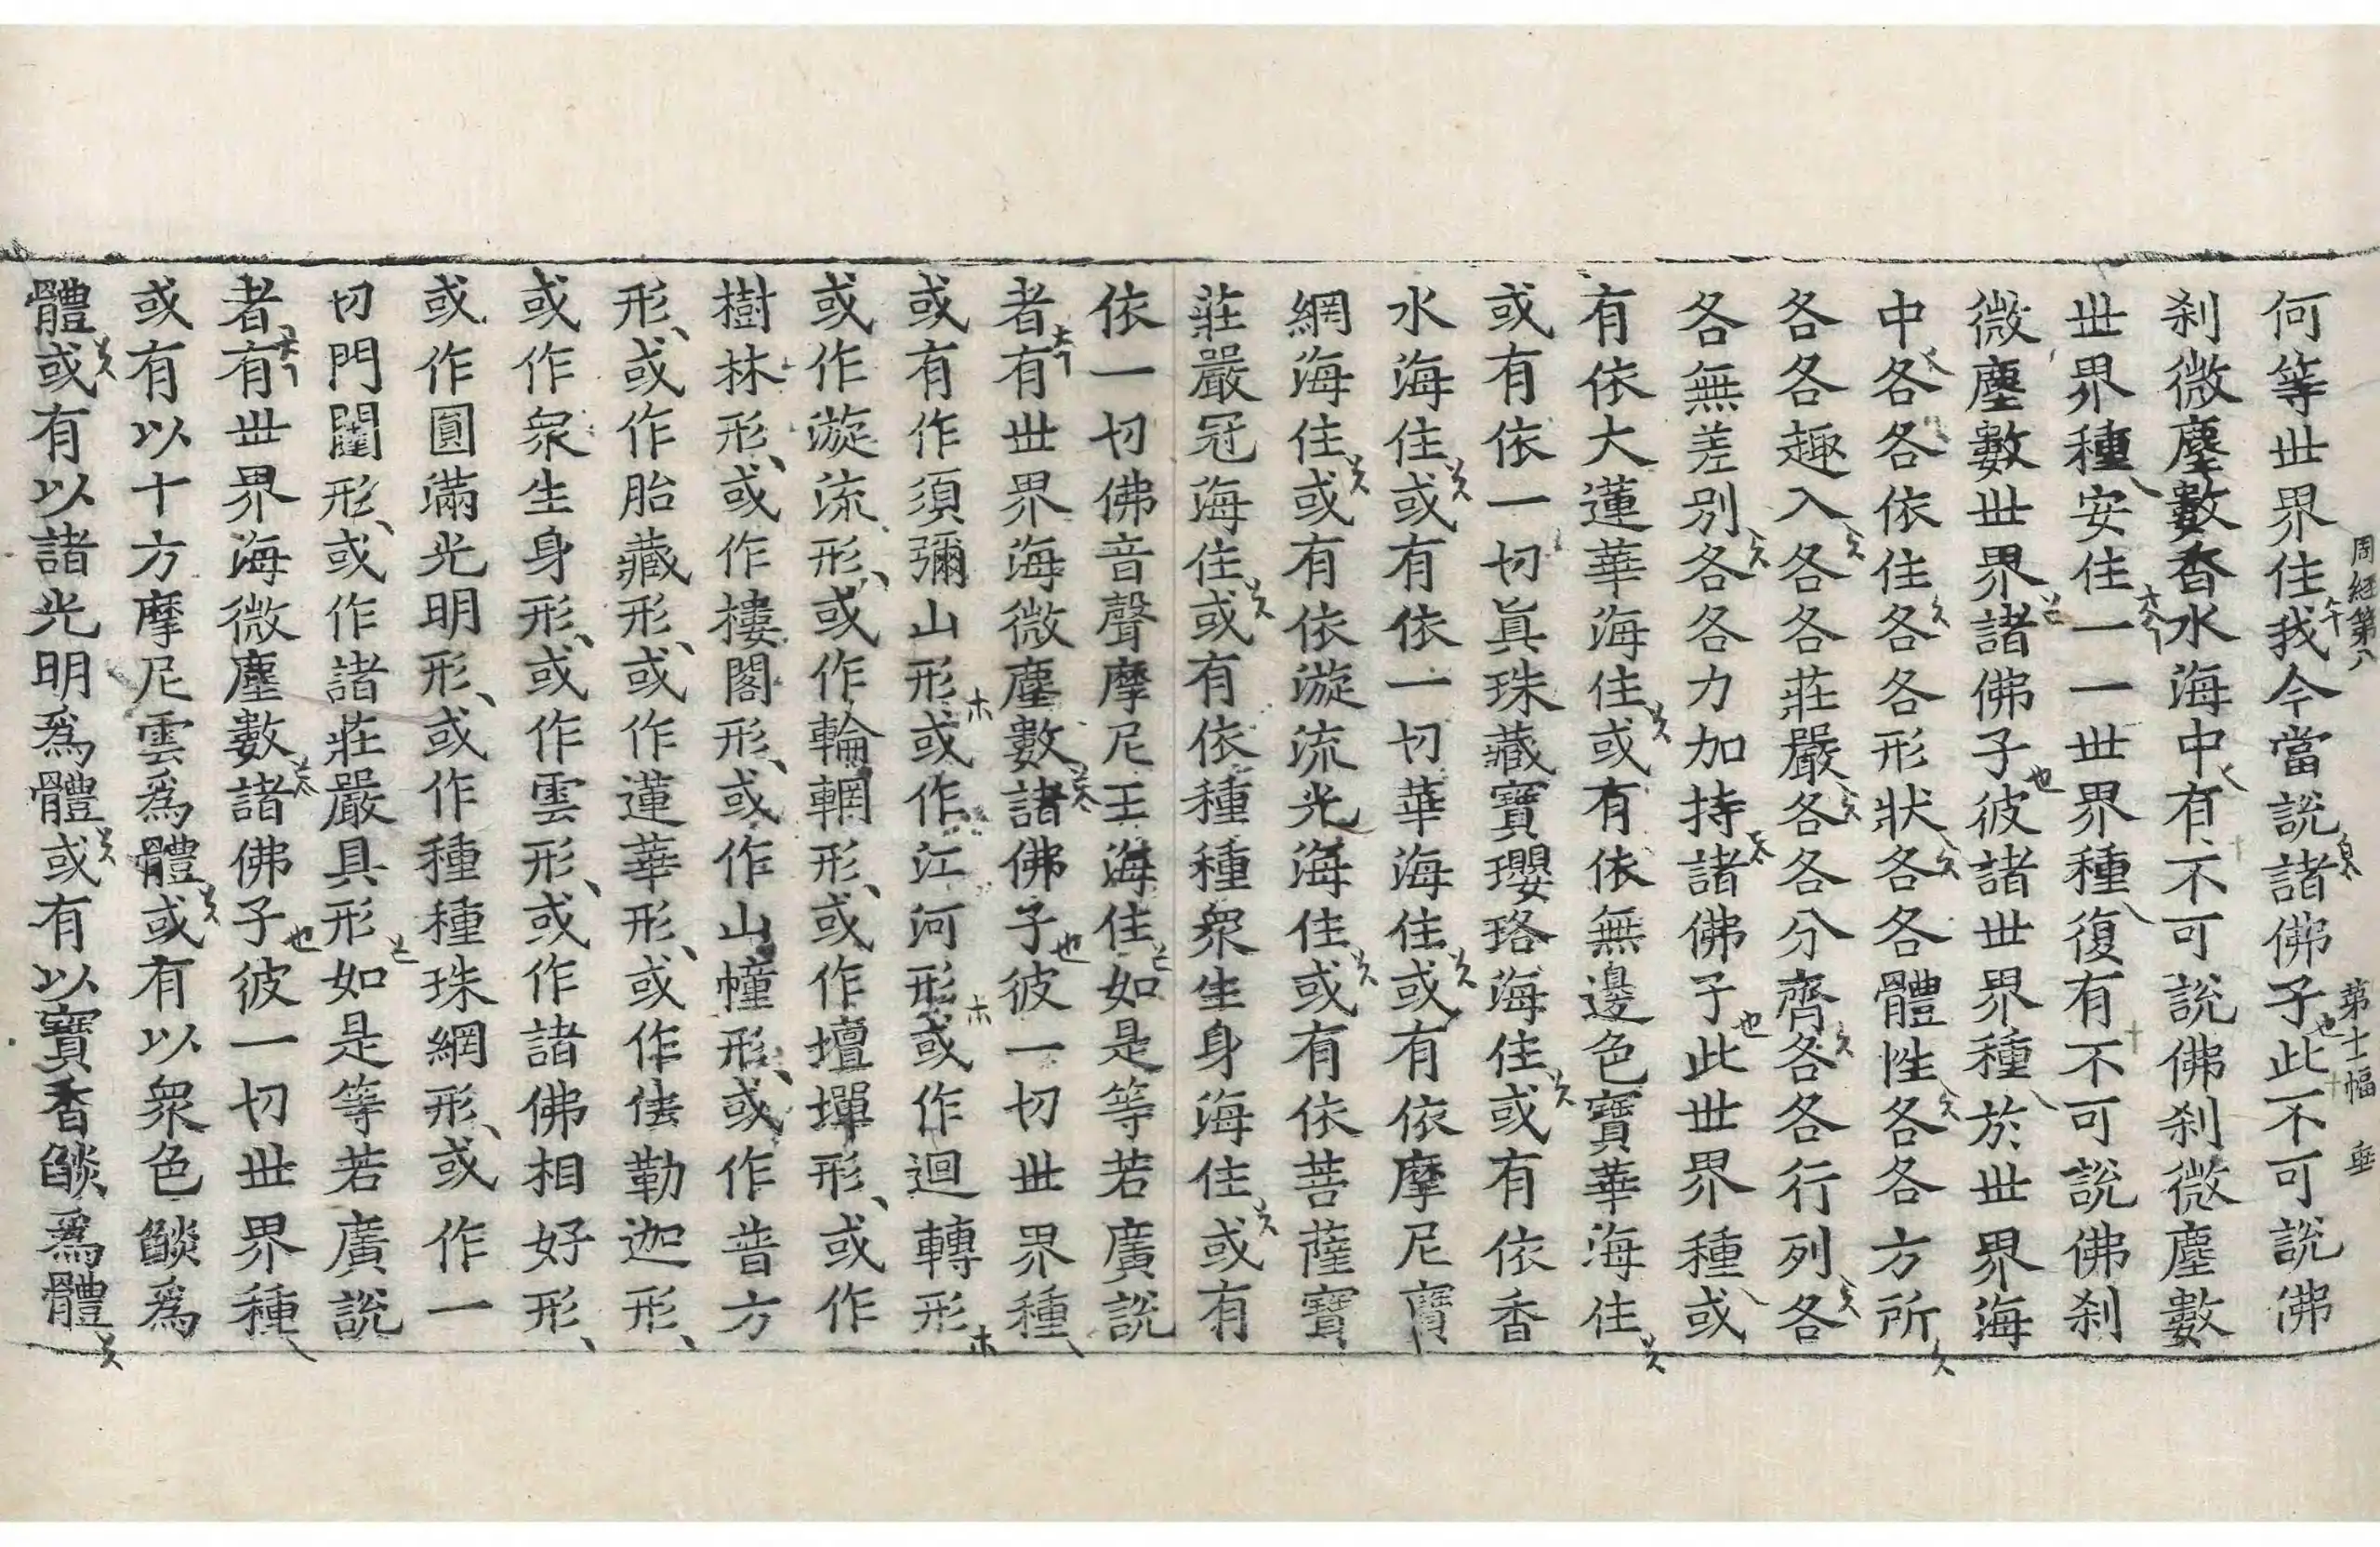 周経第八　第十一幅　垂
何等世界住我今當說諸佛子此不可說佛
刹微塵數香水海中有不可說佛刹微塵數
世界種安住一一世界種復有不可說佛刹
微塵數世界諸佛子彼諸世界種於世界海
中各各依住各各形狀各各體性各各方所
各各趣入各各莊嚴各各分齊各各行列各
各無差別各各力加持諸佛子此世界種或
有依大蓮華海住或有依無邊色寶華海住
或有依一切眞珠藏寶瓔珞海住或有依香
水海住或有依一切華海住或有依摩尼寶
網海住或有依漩流光海住或有依菩薩寶
莊嚴冠海住或有依種種衆生身海住或有
依一切佛音聲摩尼王海住如是等若廣說
者有世界海微塵數諸佛子彼一切世界種
或有作須彌山形或作江河形或作迴轉形
或作漩流形或作輪輞形或作壇墠形或作
樹林形或作樓閣形或作山幢形或作普方
形或作胎藏形或作蓮華形或作佉勒迦形
或作衆生身形或作雲形或作諸佛相好形
或作圓滿光明形或作種種珠網形或作一
切門闥形或作諸莊嚴具形如是等若廣說
者有世界海微塵數諸佛子彼一切世界種
或有以十方摩尼雲爲體或有以衆色燄爲
體或有以諸光明爲體或有以寶香燄爲體